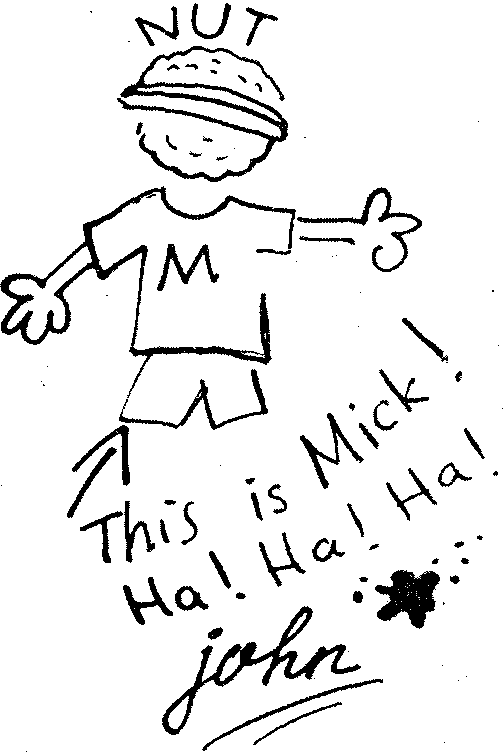 NUT
M
This is Mick!
Ha! Ha! Ha!
john